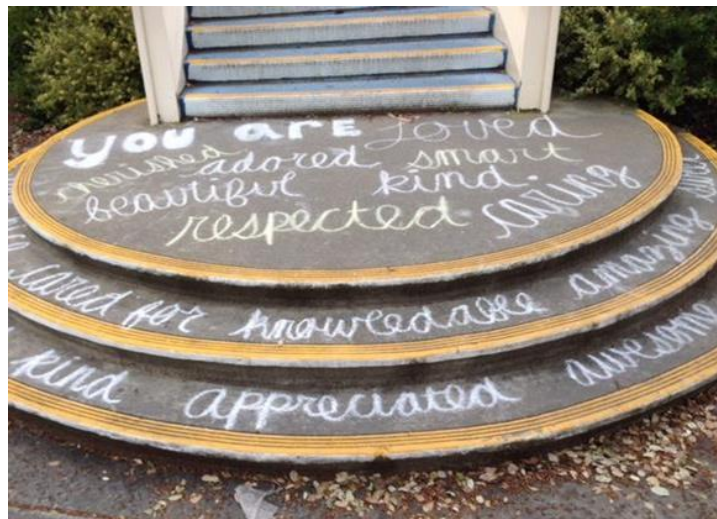 you are Loved
cherished adored smart
beautiful kind.
respected caring
cared for knowledable amazing
kind appreciated awesome